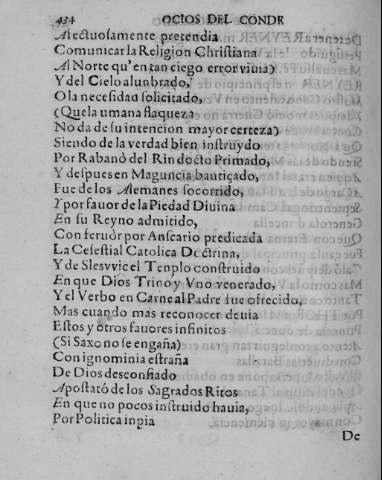 434 OCIOS DEL CONDE
Afectuosamente pretendia
Comunicar la Religion Christiana
Al Norte qu'en tan ciego error viuia)
Y del Cielo alunbrado,
O la necesidad solicitado,
(Que la umana flaqueza
No da de su intencion mayor certeza)
Siendo de la verdad bien instruydo
Por Rabano del Rin docto Primado,
Y despues en Maguncia bautiçado,
Fue de los Alemanes socorrido,
Y por fauor de la Piedad Diuina
En su Reyno admitido,
Con feruor por Anscario predicada
La Celestial Catolica Doctrina,
Y de Slesvvic el Tenplo construido
En que Dios Trino y Vno venerado,
Y el Verbo en Carne al Padre fue ofrecido,
Mas cuando mas reconocer deuia
Estos y otros fauores infinitos
(Si Saxo no se engaña)
Con ignominia estraña
De Dios desconfiado
Apostató de los Sagrados Ritos
En que no pocos instruido hauia,
Por Politica inpia
De